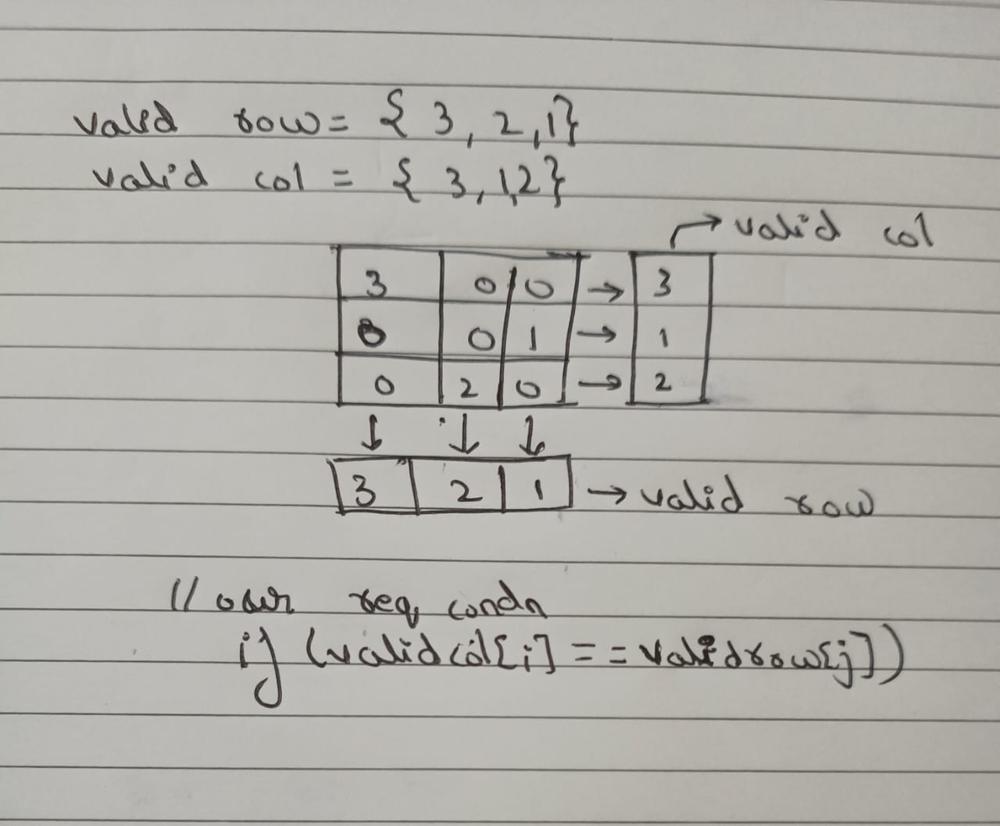 valid row = { 3, 2, 1}
valid col = { 3, 1, 2}
→ valid col
3 0 0 → 3
0 0 1 → 1
0 2 0 → 2
↓ ↓ ↓
3 2 1 → valid row
// our req condn
if (validcol[i] == validrow[j])